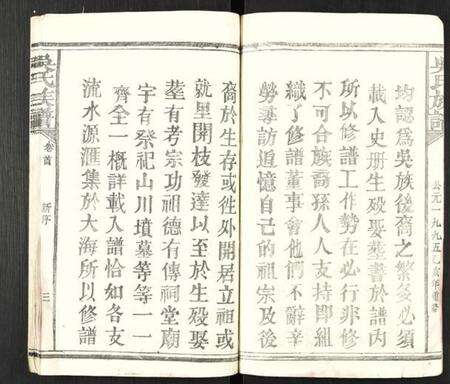 吳氏族譜
公元一九九五乙亥年重修
均認為吳族後裔之繁多必須
載入史册生殁娶塟書於譜內
所以修譜工作勢在必行非修
不可合族裔孫人人支持即組
織了修譜董事會他們不辭辛
勞尋訪追憶自己的祖宗及後
裔於生存或徃外開居立祖或
就里開枝發達以至於生殁娶
塟有考宗功祖德有傳祠堂廟
宇有祭祀山川墳墓等等一一
齊全一概詳載入譜恰如各支
流水源滙集於大海所以修譜
吳氏族譜
卷首
新序
三